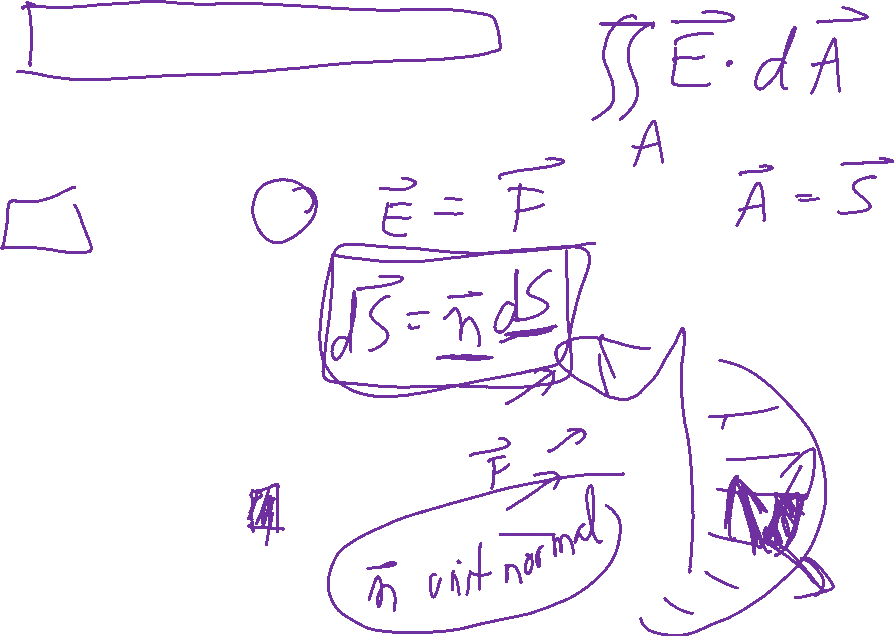 ∬_A E⃗ · dA⃗
E⃗ = F⃗ A⃗ = S⃗
dS⃗ = n⃗ dS
F⃗
n⃗ unit normal